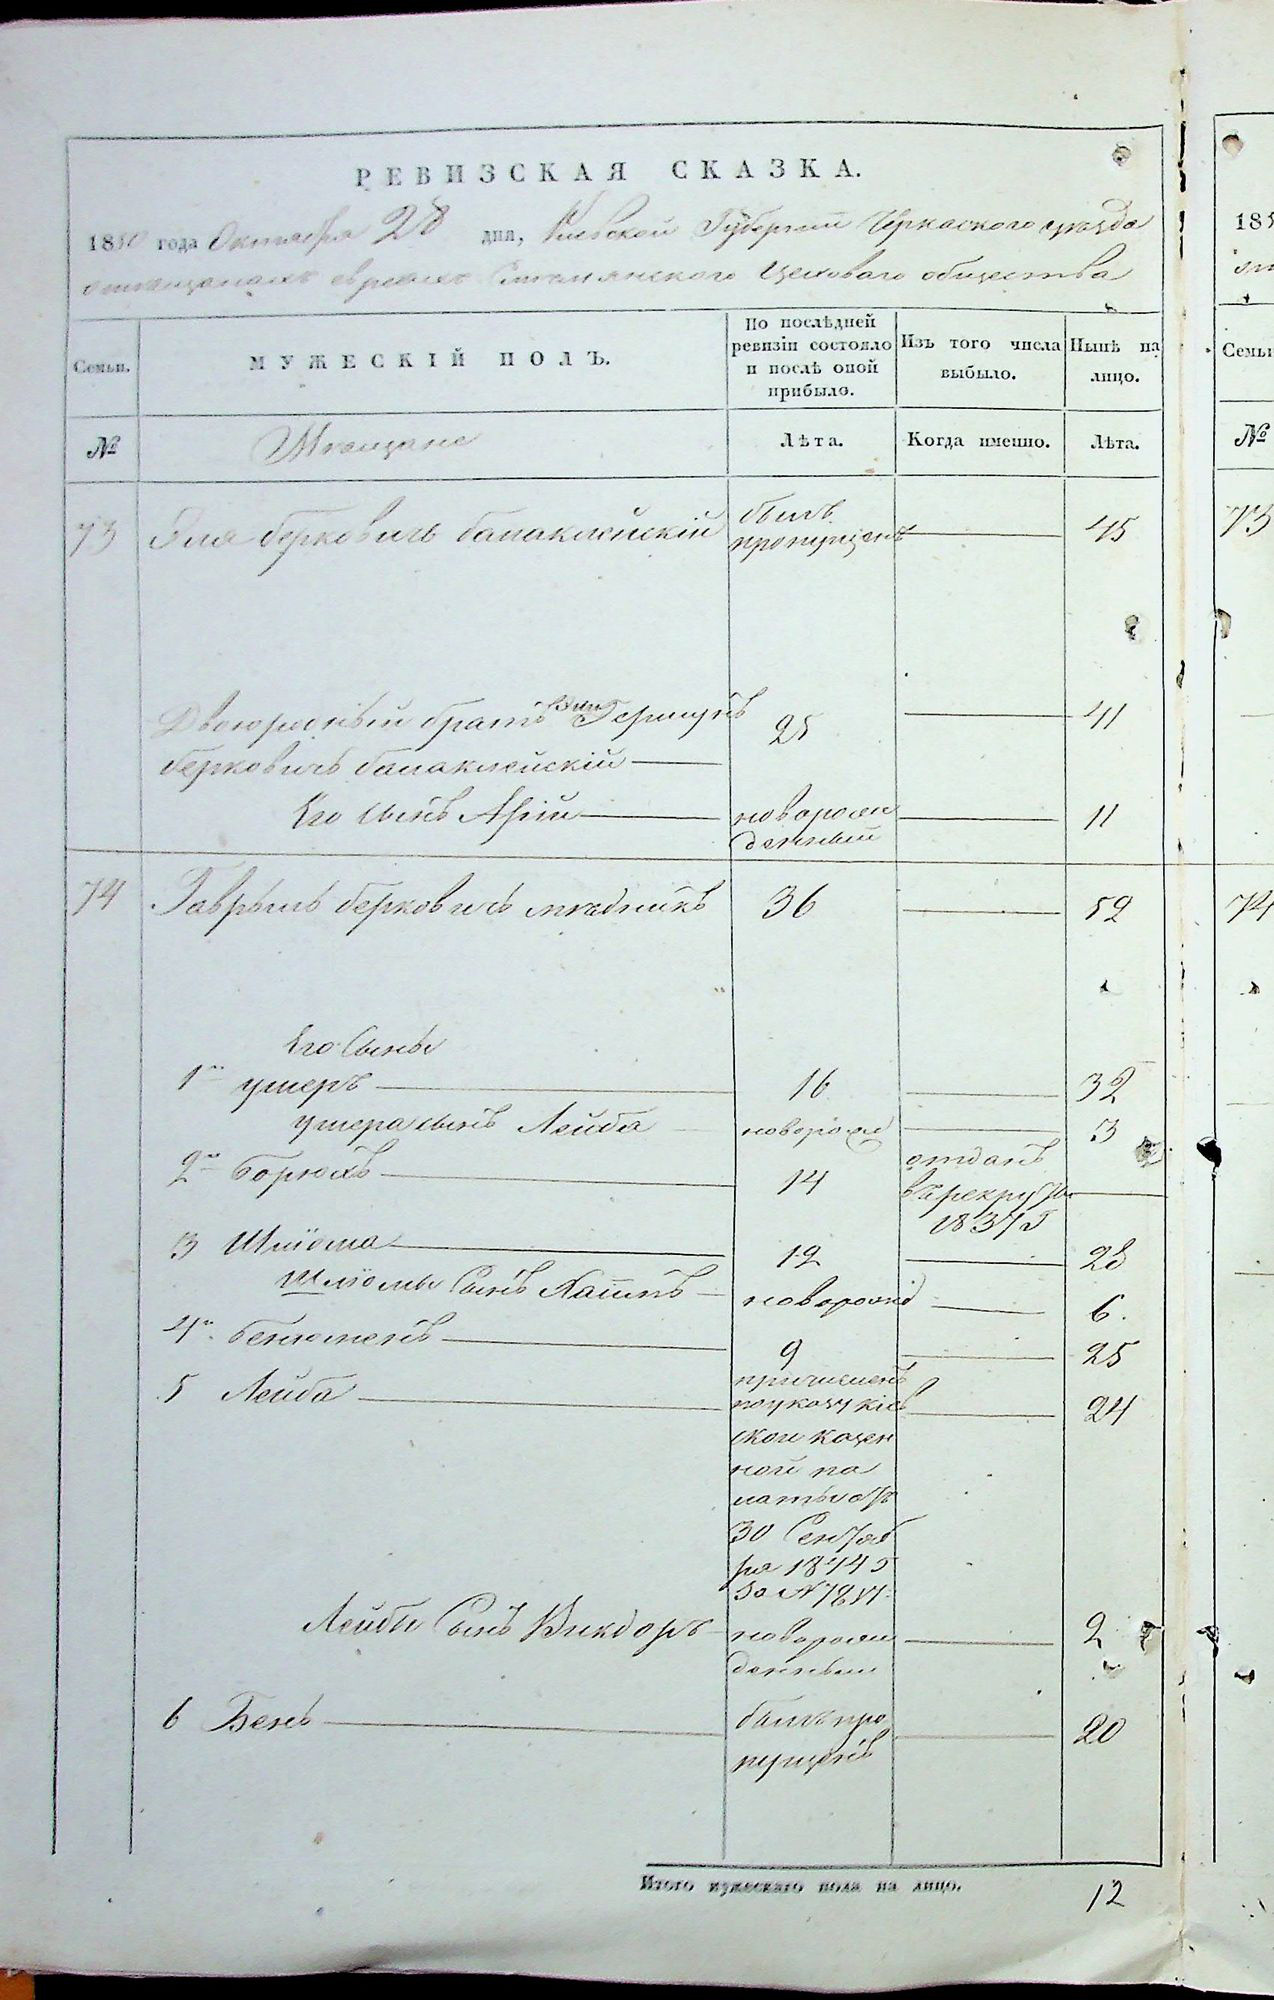 РЕВИЗСКАЯ СКАЗКА.
1850 года Октября 28 дня, Киевской Губернии Черкаского уезда
о мещанахъ евреяхъ Смелянского Цеховаго общества
Семьи.
МУЖЕСКІЙ ПОЛЪ.
По послѣдней ревизіи состояло и послѣ оной прибыло.
Изъ того числа выбыло.
Нынѣ на лицо.
№
Мещане
Лѣта.
Когда именно.
Лѣта.
73 Эля берковичъ балаклейскій былъ пропущенъ 45
Двоюродный братъ Эли Гершунъ 25 41
берковичъ балаклейскій
Его сынъ Арій новорожденный 11
74 Гаврыль берковичъ мѣдникъ 36 52
Его Сыны
1й ушеръ 16 32
ушера сынъ Лейба новорожд 3
2й Борюхъ 14 отданъ в рекруты 1837 г
3 Шліома 12 28
Шліомы Сынъ Хаимъ новорожд 6.
4й Бенюменъ 9 25
5 Лейба причисленъ по указу кіев 24
ской казен
ной па
латы отъ
30 Сентяб
ря 1844 г
за №
Лейбы Сынъ Викдоръ новорожденный 2
6 Бенъ былъ пропущенъ 20
Итого мужескаго пола на лицо. 12
185
Семьи
№
73
74